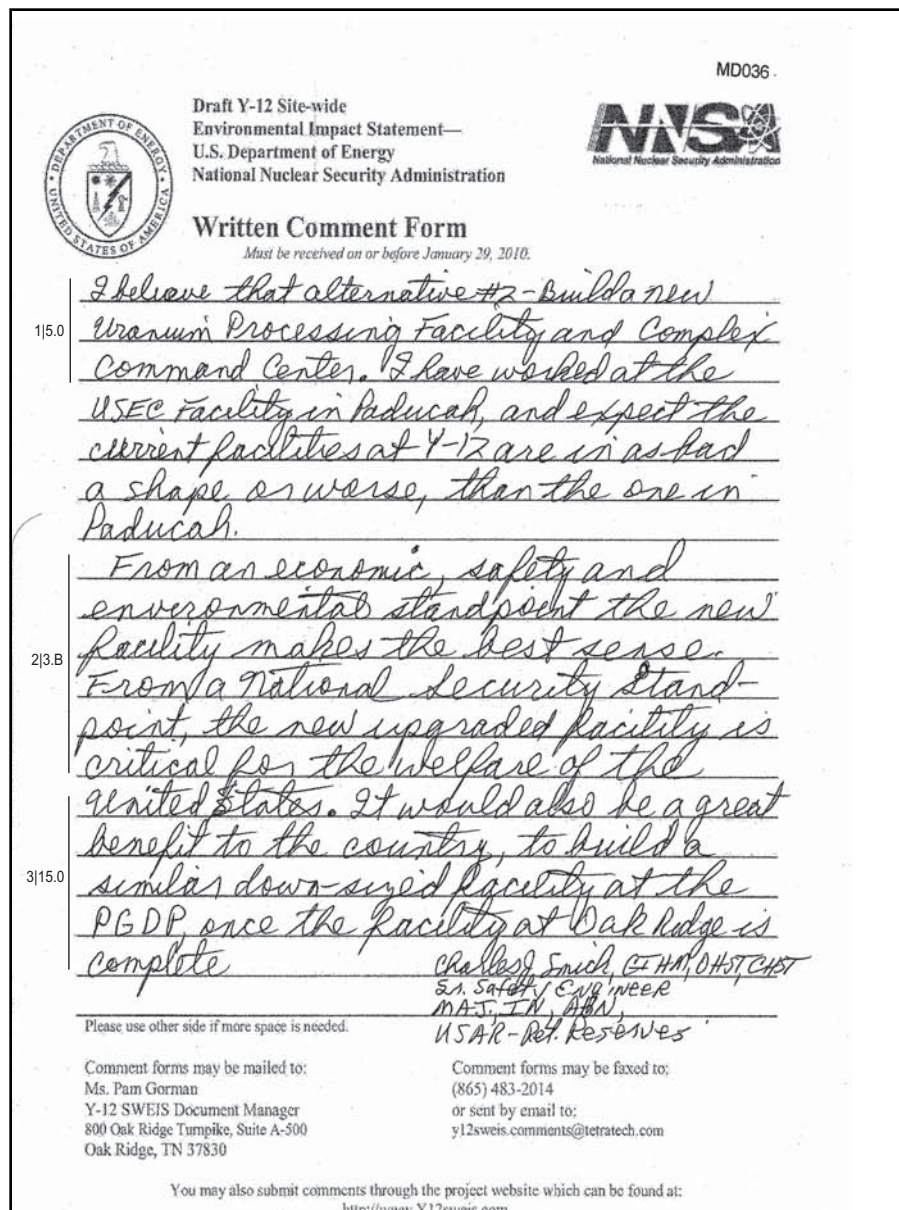 MD036
Draft Y-12 Site-wide
Environmental Impact Statement—
U.S. Department of Energy
National Nuclear Security Administration
DEPARTMENT OF ENERGY
UNITED STATES OF AMERICA
NNSA
National Nuclear Security Administration
Written Comment Form
Must be received on or before January 29, 2010.
I believe that alternative #2-Build a new
1|5.0
Uranium Processing Facility and Complex
Command Center. I have worked at the
USEC Facility in Paducah, and expect the
current facilities at Y-12 are in as bad
a shape or worse, than the one in
Paducah.
From an economic, safety and
environmental standpoint the new
2|3.B
facility makes the best sense.
From a National Security Stand-
point, the new upgraded facility is
critical for the welfare of the
United States. It would also be a great
benefit to the country, to build a
3|15.0
similar down-sized facility at the
PGDP, once the facility at Oak Ridge is
complete
Charles J. CHST
Sr. Safety Engineer
MAJ, IN, ABN,
USAR-Ret. Reserves
Please use other side if more space is needed.
Comment forms may be mailed to:
Ms. Pam Gorman
Y-12 SWEIS Document Manager
800 Oak Ridge Turnpike, Suite A-500
Oak Ridge, TN 37830
Comment forms may be faxed to:
(865) 483-2014
or sent by email to:
y12sweis.comments@tetratech.com
You may also submit comments through the project website which can be found at:
http://www.Y12sweis.com